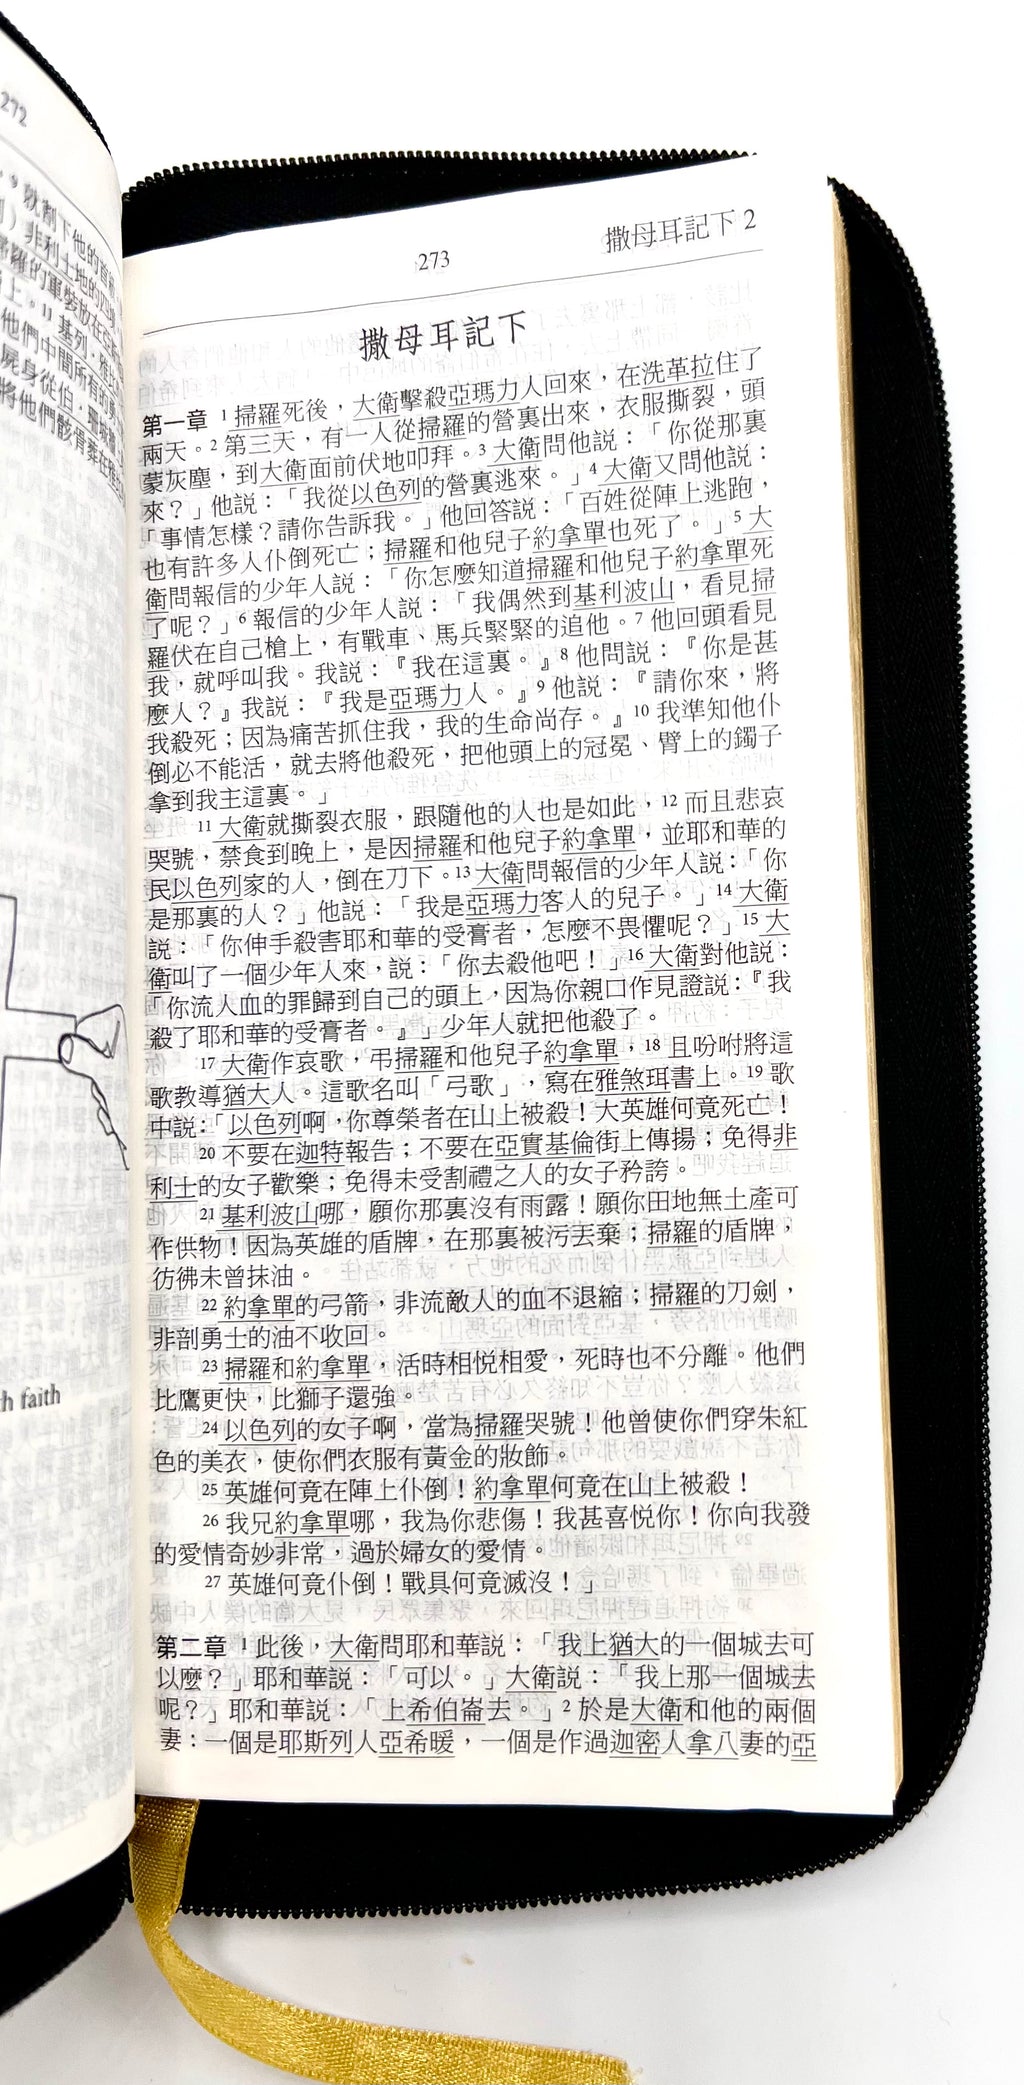 272
9 就割下他的首
非利士地的四
的軍裝放在
上。11 基列．雅
他們中間所有的勇
屍身從伯．珊城
將他們骸骨葬在
h faith
273
撒母耳記下 2
撒母耳記下
第一章 1 掃羅死後，大衛擊殺亞瑪力人回來，在洗革拉住了
兩天。2 第三天，有一人從掃羅的營裏出來，衣服撕裂，頭
蒙灰塵，到大衛面前伏地叩拜。3 大衛問他説：「你從那裏
來？」他説：「我從以色列的營裏逃來。」4 大衛又問他説：
「事情怎樣？請你告訴我。」他回答説：「百姓從陣上逃跑，
也有許多人仆倒死亡；掃羅和他兒子約拿單也死了。」5 大
衛問報信的少年人説：「你怎麼知道掃羅和他兒子約拿單死
了呢？」6 報信的少年人説：「我偶然到基利波山，看見掃
羅伏在自己槍上，有戰車、馬兵緊緊的追他。7 他回頭看見
我，就呼叫我。我説：『我在這裏。』8 他問説：『你是甚
麼人？』我説：『我是亞瑪力人。』9 他説：『請你來，將
我殺死；因為痛苦抓住我，我的生命尚存。』10 我準知他仆
倒必不能活，就去將他殺死，把他頭上的冠冕、臂上的鐲子
拿到我主這裏。」
11 大衛就撕裂衣服，跟隨他的人也是如此，12 而且悲哀
哭號，禁食到晚上，是因掃羅和他兒子約拿單，並耶和華的
民以色列家的人，倒在刀下。13 大衛問報信的少年人説：「你
是那裏的人？」他説：「我是亞瑪力客人的兒子。」14 大衛
説：「你伸手殺害耶和華的受膏者，怎麼不畏懼呢？」15 大
衛叫了一個少年人來，説：「你去殺他吧！」16 大衛對他説：
「你流人血的罪歸到自己的頭上，因為你親口作見證説：『我
殺了耶和華的受膏者。』」少年人就把他殺了。
17 大衛作哀歌，弔掃羅和他兒子約拿單，18 且吩咐將這
歌教導猶大人。這歌名叫「弓歌」，寫在雅煞珥書上。19 歌
中説：「以色列啊，你尊榮者在山上被殺！大英雄何竟死亡！
20 不要在迦特報告；不要在亞實基倫街上傳揚；免得非
利士的女子歡樂；免得未受割禮之人的女子矜誇。
21 基利波山哪，願你那裏沒有雨露！願你田地無土產可
作供物！因為英雄的盾牌，在那裏被污丟棄；掃羅的盾牌，
彷彿未曾抹油。
22 約拿單的弓箭，非流敵人的血不退縮；掃羅的刀劍，
非剖勇士的油不收回。
23 掃羅和約拿單，活時相悦相愛，死時也不分離。他們
比鷹更快，比獅子還強。
24 以色列的女子啊，當為掃羅哭號！他曾使你們穿朱紅
色的美衣，使你們衣服有黃金的妝飾。
25 英雄何竟在陣上仆倒！約拿單何竟在山上被殺！
26 我兄約拿單哪，我為你悲傷！我甚喜悦你！你向我發
的愛情奇妙非常，過於婦女的愛情。
27 英雄何竟仆倒！戰具何竟滅沒！」
第二章 1 此後，大衛問耶和華説：「我上猶大的一個城去可
以麼？」耶和華説：「可以。」大衛説：「我上那一個城去
呢？」耶和華説：「上希伯崙去。」2 於是大衛和他的兩個
妻：一個是耶斯列人亞希暖，一個是作過迦密人拿八妻的亞